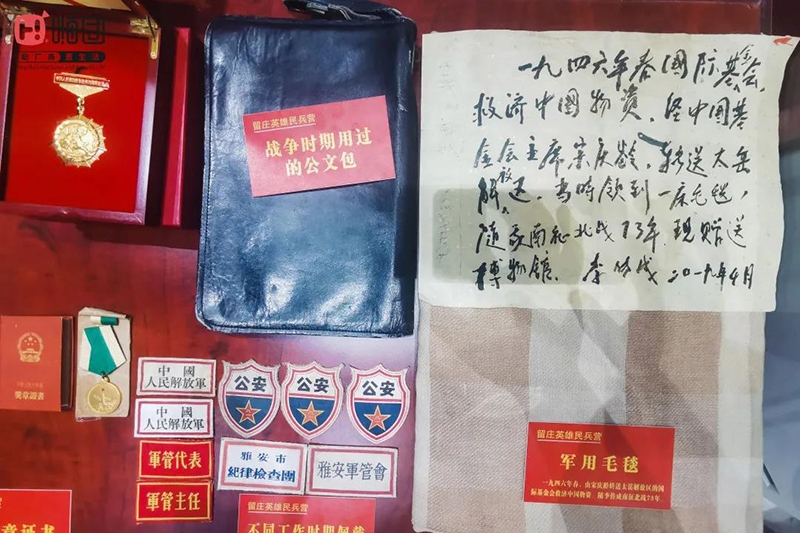 嗨团
中國
人民解放軍
中國
人民解放軍
軍管代表
軍管主任
公安
公安
公安
雅安市
紀律檢查團
雅安軍管會
獎章證書
章证书
留庄英雄民兵营
战争时期用过
的公文包
留庄英雄民兵营
不同工作时期佩戴
一九四六年春国际基金会,
救济中国物资，经中国基
金会主席宋庆龄，转送太岳
解放区，当时领到一床毛毯，
随我南征北战73年，现赠送
博物馆。李传成 二〇一九年4月
留庄英雄民兵营
军用毛毯
一九四六年春，由宋庆龄转送太岳解放区的国
际基金会救济中国物资。随李传成南征北战73年。